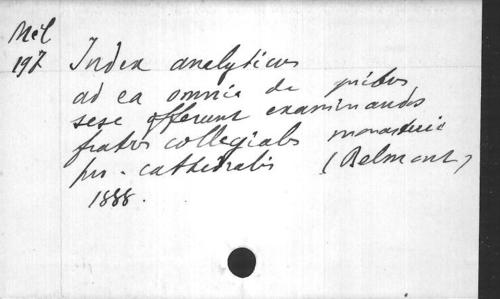 Mel
197
Index analyticus
ad ea omnia de quibus
sese offerunt examinandos
fratres collegiales monasterii
pro-cathedralis (Belmont)
1888.